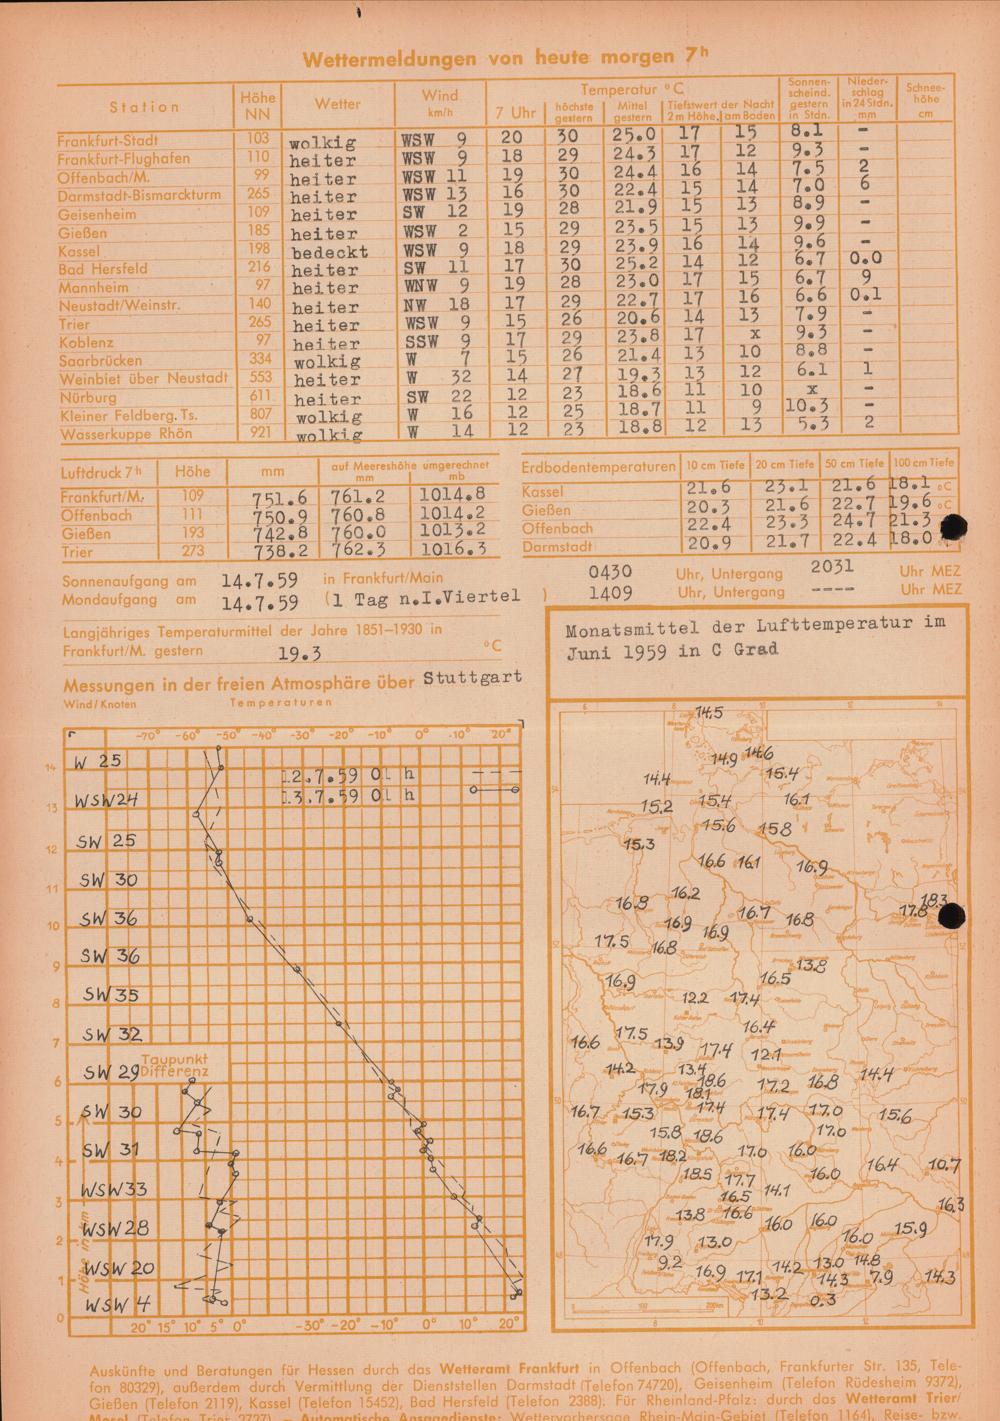 Wettermeldungen von heute morgen 7h
Station Höhe NN Wetter Wind km/h Temperatur °C Sonnen-scheind. gestern in Stdn. Nieder-schlag in 24 Stdn. mm Schnee-höhe cm
7 Uhr höchste gestern Mittel gestern Tiefstwert der Nacht 2 m Höhe, am Boden
Frankfurt-Stadt 103 wolkig WSW 9 20 30 25.0 17 15 8.1 -
Frankfurt-Flughafen 110 heiter WSW 9 18 29 24.3 17 12 9.3 -
Offenbach/M. 99 heiter WSW 11 19 30 24.4 16 14 7.5 2
Darmstadt-Bismarckturm 265 heiter WSW 13 16 30 22.4 15 14 7.0 6
Geisenheim 109 heiter SW 12 19 28 21.9 15 13 8.9 -
Gießen 185 heiter WSW 2 15 29 23.5 15 13 9.9 -
Kassel 198 bedeckt WSW 9 18 29 23.9 16 14 9.6 -
Bad Hersfeld 216 heiter SW 11 17 30 25.2 14 12 6.7 0.0
Mannheim 97 heiter WNW 9 19 28 23.0 17 15 6.7 9
Neustadt/Weinstr. 140 heiter NW 18 17 29 22.7 17 16 6.6 0.1
Trier 265 heiter WSW 9 15 26 20.6 14 13 7.9 -
Koblenz 97 heiter SSW 9 17 29 23.8 17 x 9.3 -
Saarbrücken 334 wolkig W 7 15 26 21.4 13 10 8.8 -
Weinbiet über Neustadt 553 heiter W 32 14 27 19.3 13 12 6.1 1
Nürburg 611 heiter SW 22 12 23 18.6 11 10 x -
Kleiner Feldberg.Ts. 807 wolkig W 16 12 25 18.7 11 9 10.3 -
Wasserkuppe Rhön 921 wolkig W 14 12 23 18.8 12 13 5.3 2
Luftdruck 7h Höhe mm auf Meereshöhe umgerechnet mm mb
Frankfurt/M. 109 751.6 761.2 1014.8
Offenbach 111 750.9 760.8 1014.2
Gießen 193 742.8 760.0 1013.2
Trier 273 738.2 762.3 1016.3
Erdbodentemperaturen 10 cm Tiefe 20 cm Tiefe 50 cm Tiefe 100 cm Tiefe
Kassel 21.6 23.1 21.6 18.1 °C
Gießen 20.3 21.6 22.7 19.6 °C
Offenbach 22.4 23.3 24.7 21.3
Darmstadt 20.9 21.7 22.4 18.0
Sonnenaufgang am 14.7.59 in Frankfurt/Main 0430 Uhr, Untergang 2031 Uhr MEZ
Mondaufgang am 14.7.59 (1 Tag n.I.Viertel ) 1409 Uhr, Untergang ---- Uhr MEZ
Langjähriges Temperaturmittel der Jahre 1851–1930 in
Frankfurt/M. gestern 19.3 °C
Messungen in der freien Atmosphäre über Stuttgart
Wind/Knoten Temperaturen
-70° -60° -50° -40° -30° -20° -10° 0° 10° 20°
W 25
14
12.7.59 01 h
13.7.59 01 h
WSW 24
13
SW 25
12
SW 30
11
SW 36
10
SW 36
9
SW 35
8
SW 32
7
SW 29
Taupunkt
Differenz
6
SW 30
5
SW 31
4
WSW 33
3
WSW 28
2
WSW 20
1
WSW 4
0
Höhe in km
20° 15° 10° 5° 0° -30° -20° -10° 0° 10° 20°
Monatsmittel der Lufttemperatur im
Juni 1959 in C Grad
14.5
14.9 14.6
14.4 15.4
15.2 15.4 16.1
15.6 15.8
15.3
16.6 16.1 16.9
16.2 18.3
16.8 16.7 16.8 17.8
16.9 16.9
17.5 16.8
13.8
16.9 16.5
12.2 17.4
17.5 16.4
16.6 13.9 17.4 12.1
14.2 13.4 14.4
17.9 18.6 17.2 16.8
18.1
16.7 15.3 17.4 17.4 17.0 15.6
15.8 18.6 17.0
16.6 16.7 18.2 17.0 16.0
18.5 17.7 16.0 16.4 10.7
16.5 14.1
13.8 16.6 16.0 16.0 16.3
17.9 13.0 16.0 15.9
9.2 16.9 17.1 14.2 13.0 14.8
14.3 7.9 14.3
13.2 0.3
Auskünfte und Beratungen für Hessen durch das Wetteramt Frankfurt in Offenbach (Offenbach, Frankfurter Str. 135, Tele-
fon 80329), außerdem durch Vermittlung der Dienststellen Darmstadt (Telefon 74720), Geisenheim (Telefon Rüdesheim 9372),
Gießen (Telefon 2119), Kassel (Telefon 15452), Bad Hersfeld (Telefon 2388); Für Rheinland-Pfalz: durch das Wetteramt Trier/
Mosel (Telefon Trier 2727). – Automatische Ansagedienste: Wettervorhersage Rhein-Main-Gebiet (Telefon 1164), Reise- bzw.